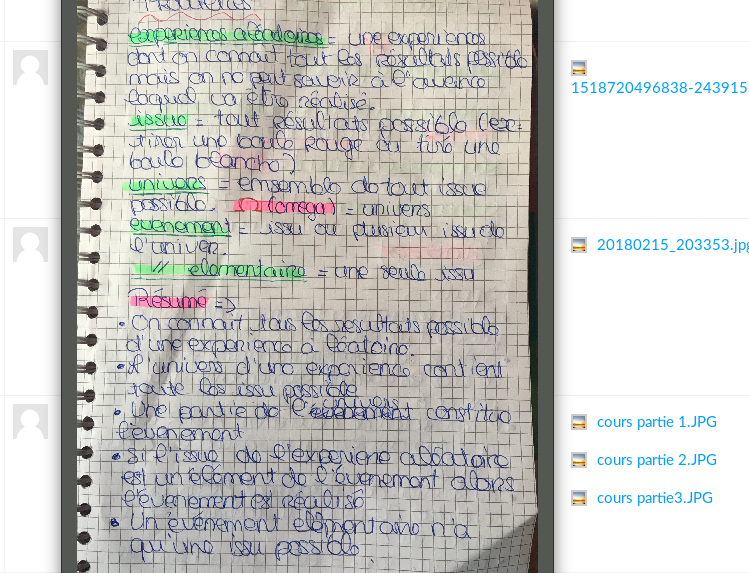 experience aléatoire = une experience
dont on connait tout les résultats possible
mais on ne peut savoir à l'avance
laquel va être réalisé.
issue = tout résultats possible (ex:
tirer une boule rouge ou tiré une
boule blanche)
univers = emsemble de tout issue
possible. Ω (omega) = univers
evenement = issu ou plusieur issu de
l'univer.
// elementaire = une seule issu
Résumé =>
• On connait tous les resultats possible
d'une experience aléatoire.
• L'univers d'une experience contient
toute les issu possible
• Une partie de l'univers constitue
l'evenement
• Si l'issue de l'experiene aléatoire
est un élément de l'evenement alors
l'évenement est réalisé
• Un événement elementaire n'a
qu'une issu possible.
1518720496838-243915
20180215_203353.jpg
cours partie 1.JPG
cours partie 2.JPG
cours partie3.JPG